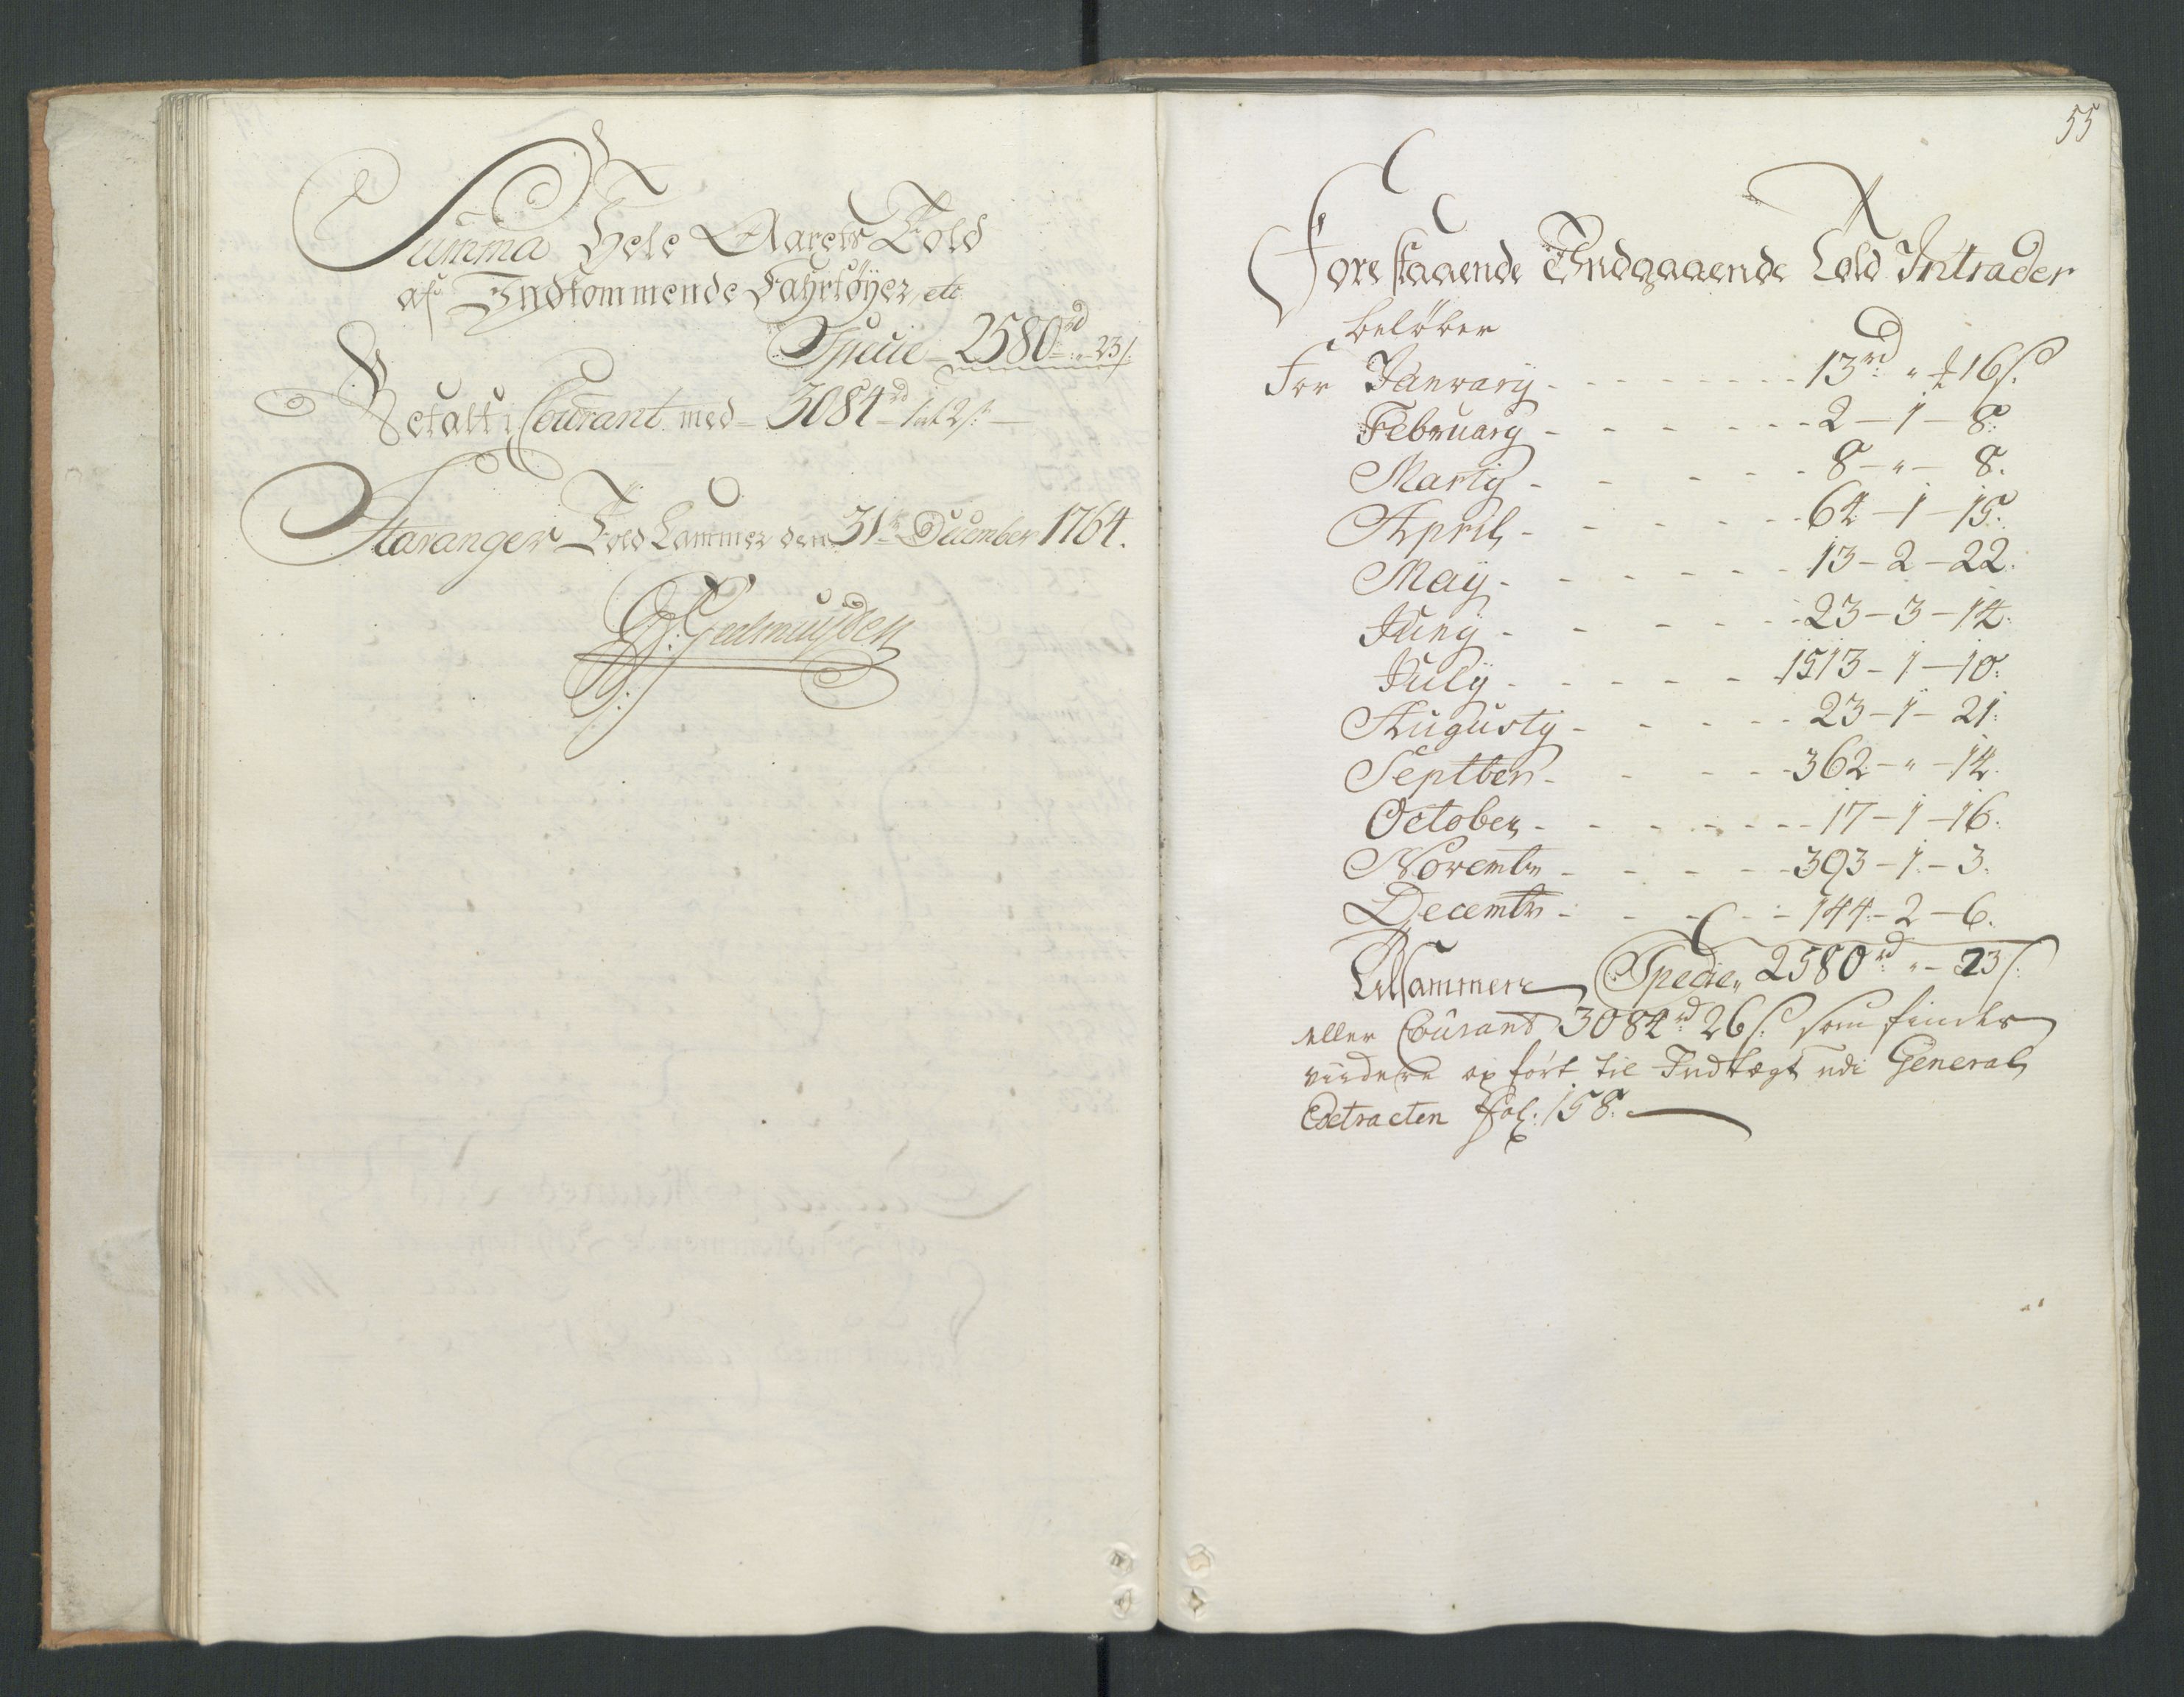 Summa Hele Aarets Told
af Indkommende Fahrtøyer etc
Specie 2580rd „ 23s:
Betalt i Courant med 3084rd 1 mk 2s:
Stavanger Told Cammer den 31te December 1764.
55
Forestaaende Indgaaende Told Intrader
beløber
For January - - - 13rd „ 16s:
February - - - 2 - 1 - 8.
Marty - - - 8 - „ - 8.
April - - - 64 - 1 - 15.
May - - - 13 - 2 - 22.
Juny - - - 23 - 3 - 14.
July - - - 1513 - 1 - 10.
Augusty - - - 23 - 1 - 21.
Septber - - - 362 - „ - 14.
October - - - 17 - 1 - 16.
Novembr - - - 393 - 1 - 3.
Decembr - - - 144 - 2 - 6.
Tilsammen Specie „ 2580rd „ - 23s:
eller Courant 3084rd 26s: som findes
viidere op ført til Indtægt udi General
Extracten Fol: 158.